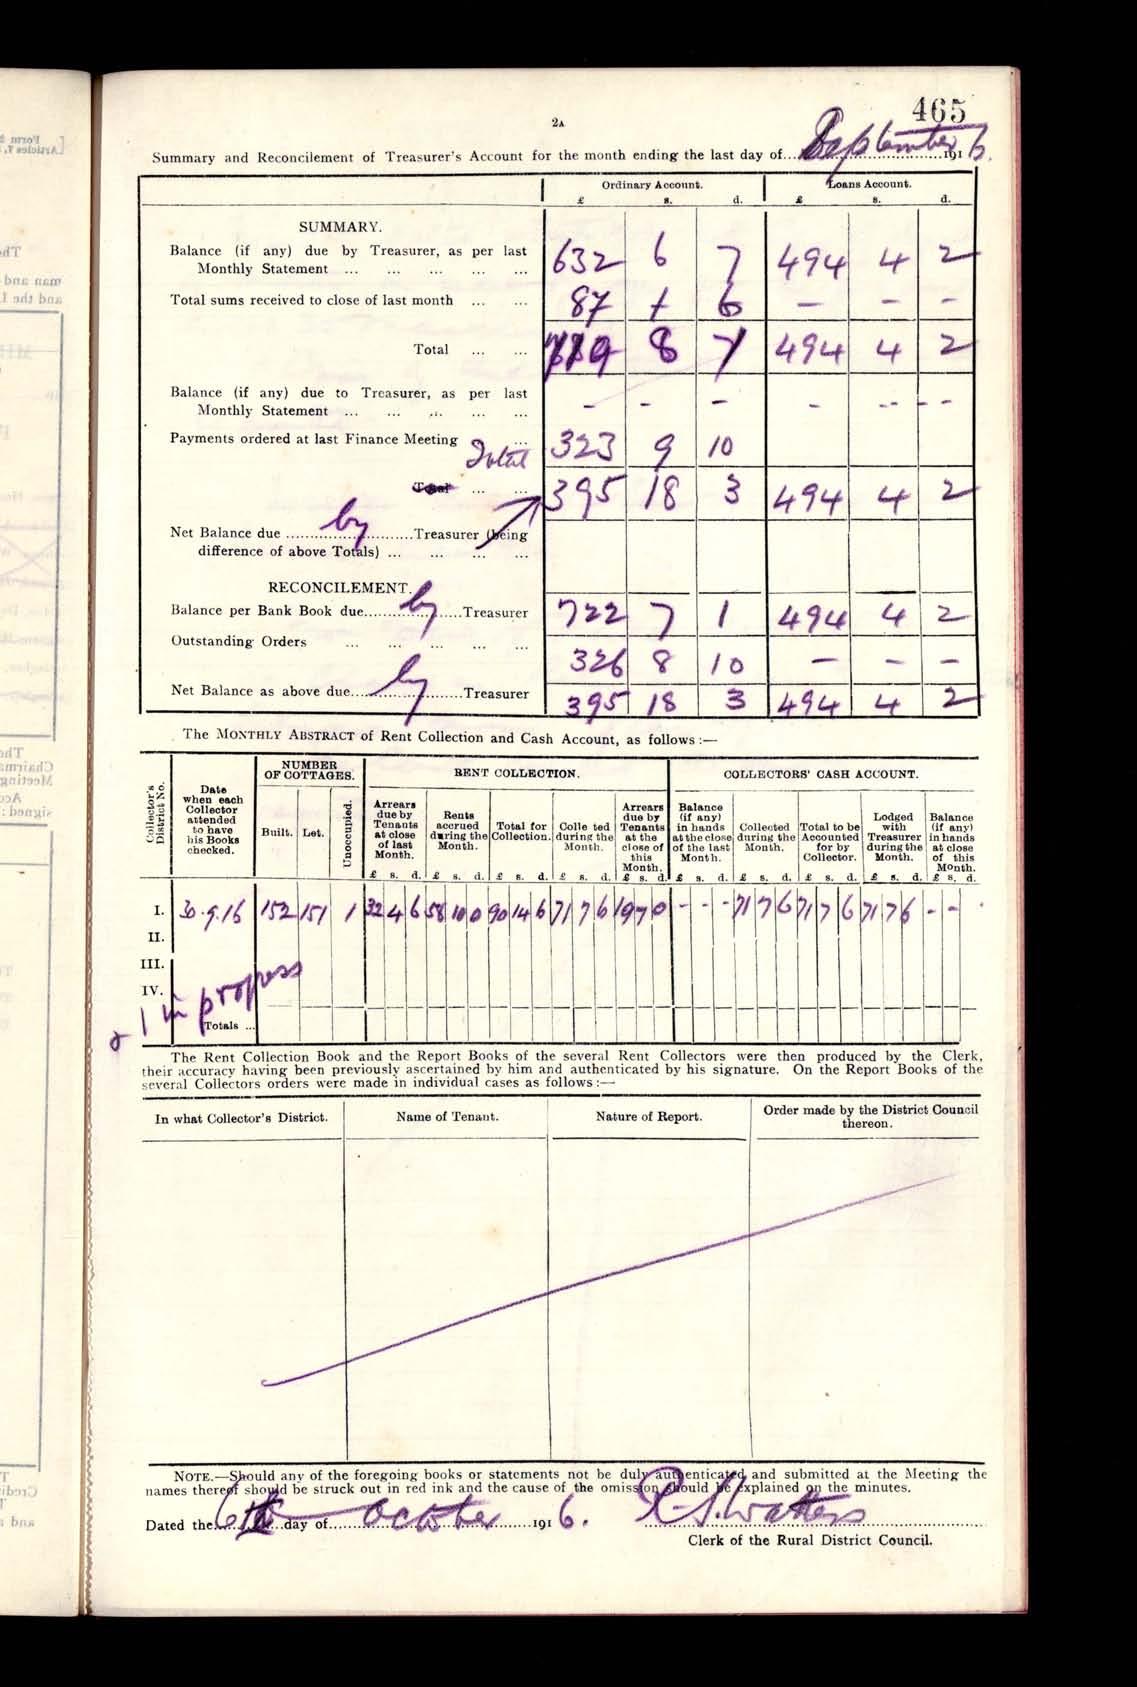 465
2A
Summary and Reconcilement of Treasurer's Account for the month ending the last day of... September 1916.
Ordinary Account. Loans Account.
£ s. d. £ s. d.
SUMMARY.
Balance (if any) due by Treasurer, as per last
Monthly Statement ... ... ... ... ... 632 6 7 494 4 2
Total sums received to close of last month ... ... 87 1 6 – – –
Total ... ... 719 8 1 494 4 2
Balance (if any) due to Treasurer, as per last
Monthly Statement ... ... ... ... ... – – – – -- – –
Payments ordered at last Finance Meeting ... 323 9 10
Total
Total ... ... 395 18 3 494 4 2
Net Balance due by Treasurer (being
difference of above Totals) ... ... ... ...
RECONCILEMENT.
Balance per Bank Book due by Treasurer 722 7 1 494 4 2
Outstanding Orders ... ... ... ... ... 326 8 10 – – –
Net Balance as above due by Treasurer 395 18 3 494 4 2
The MONTHLY ABSTRACT of Rent Collection and Cash Account, as follows :—
Collector's District No.
Date when each Collector attended to have his Books checked.
NUMBER OF COTTAGES.
Built. Let. Unoccupied.
RENT COLLECTION.
Arrears due by Tenants at close of last Month. £ s. d.
Rents accrued during the Month. £ s. d.
Total for Collection. £ s. d.
Colle ted during the Month. £ s. d.
Arrears due by Tenants at the close of this Month. £ s. d.
COLLECTORS' CASH ACCOUNT.
Balance (if any) in hands at the close of the last Month. £ s. d.
Collected during the Month. £ s. d.
Total to be Accounted for by Collector. £ s. d.
Lodged with Treasurer during the Month. £ s. d.
Balance (if any) in hands at close of this Month. £ s. d.
I. 30.9.16 152 151 1 32 4 6 58 10 0 90 14 6 71 7 6 19 7 0 – – – 71 7 6 71 7 6 71 7 6 – –
II.
III.
IV.
& 1 in progress
Totals ...
The Rent Collection Book and the Report Books of the several Rent Collectors were then produced by the Clerk,
their accuracy having been previously ascertained by him and authenticated by his signature. On the Report Books of the
several Collectors orders were made in individual cases as follows :—
In what Collector's District. Name of Tenant. Nature of Report. Order made by the District Council
thereon.
NOTE.—Should any of the foregoing books or statements not be duly authenticated and submitted at the Meeting the
names thereof should be struck out in red ink and the cause of the omission should be explained on the minutes.
Dated the 6th day of October 1916. R. S. Watters
Clerk of the Rural District Council.